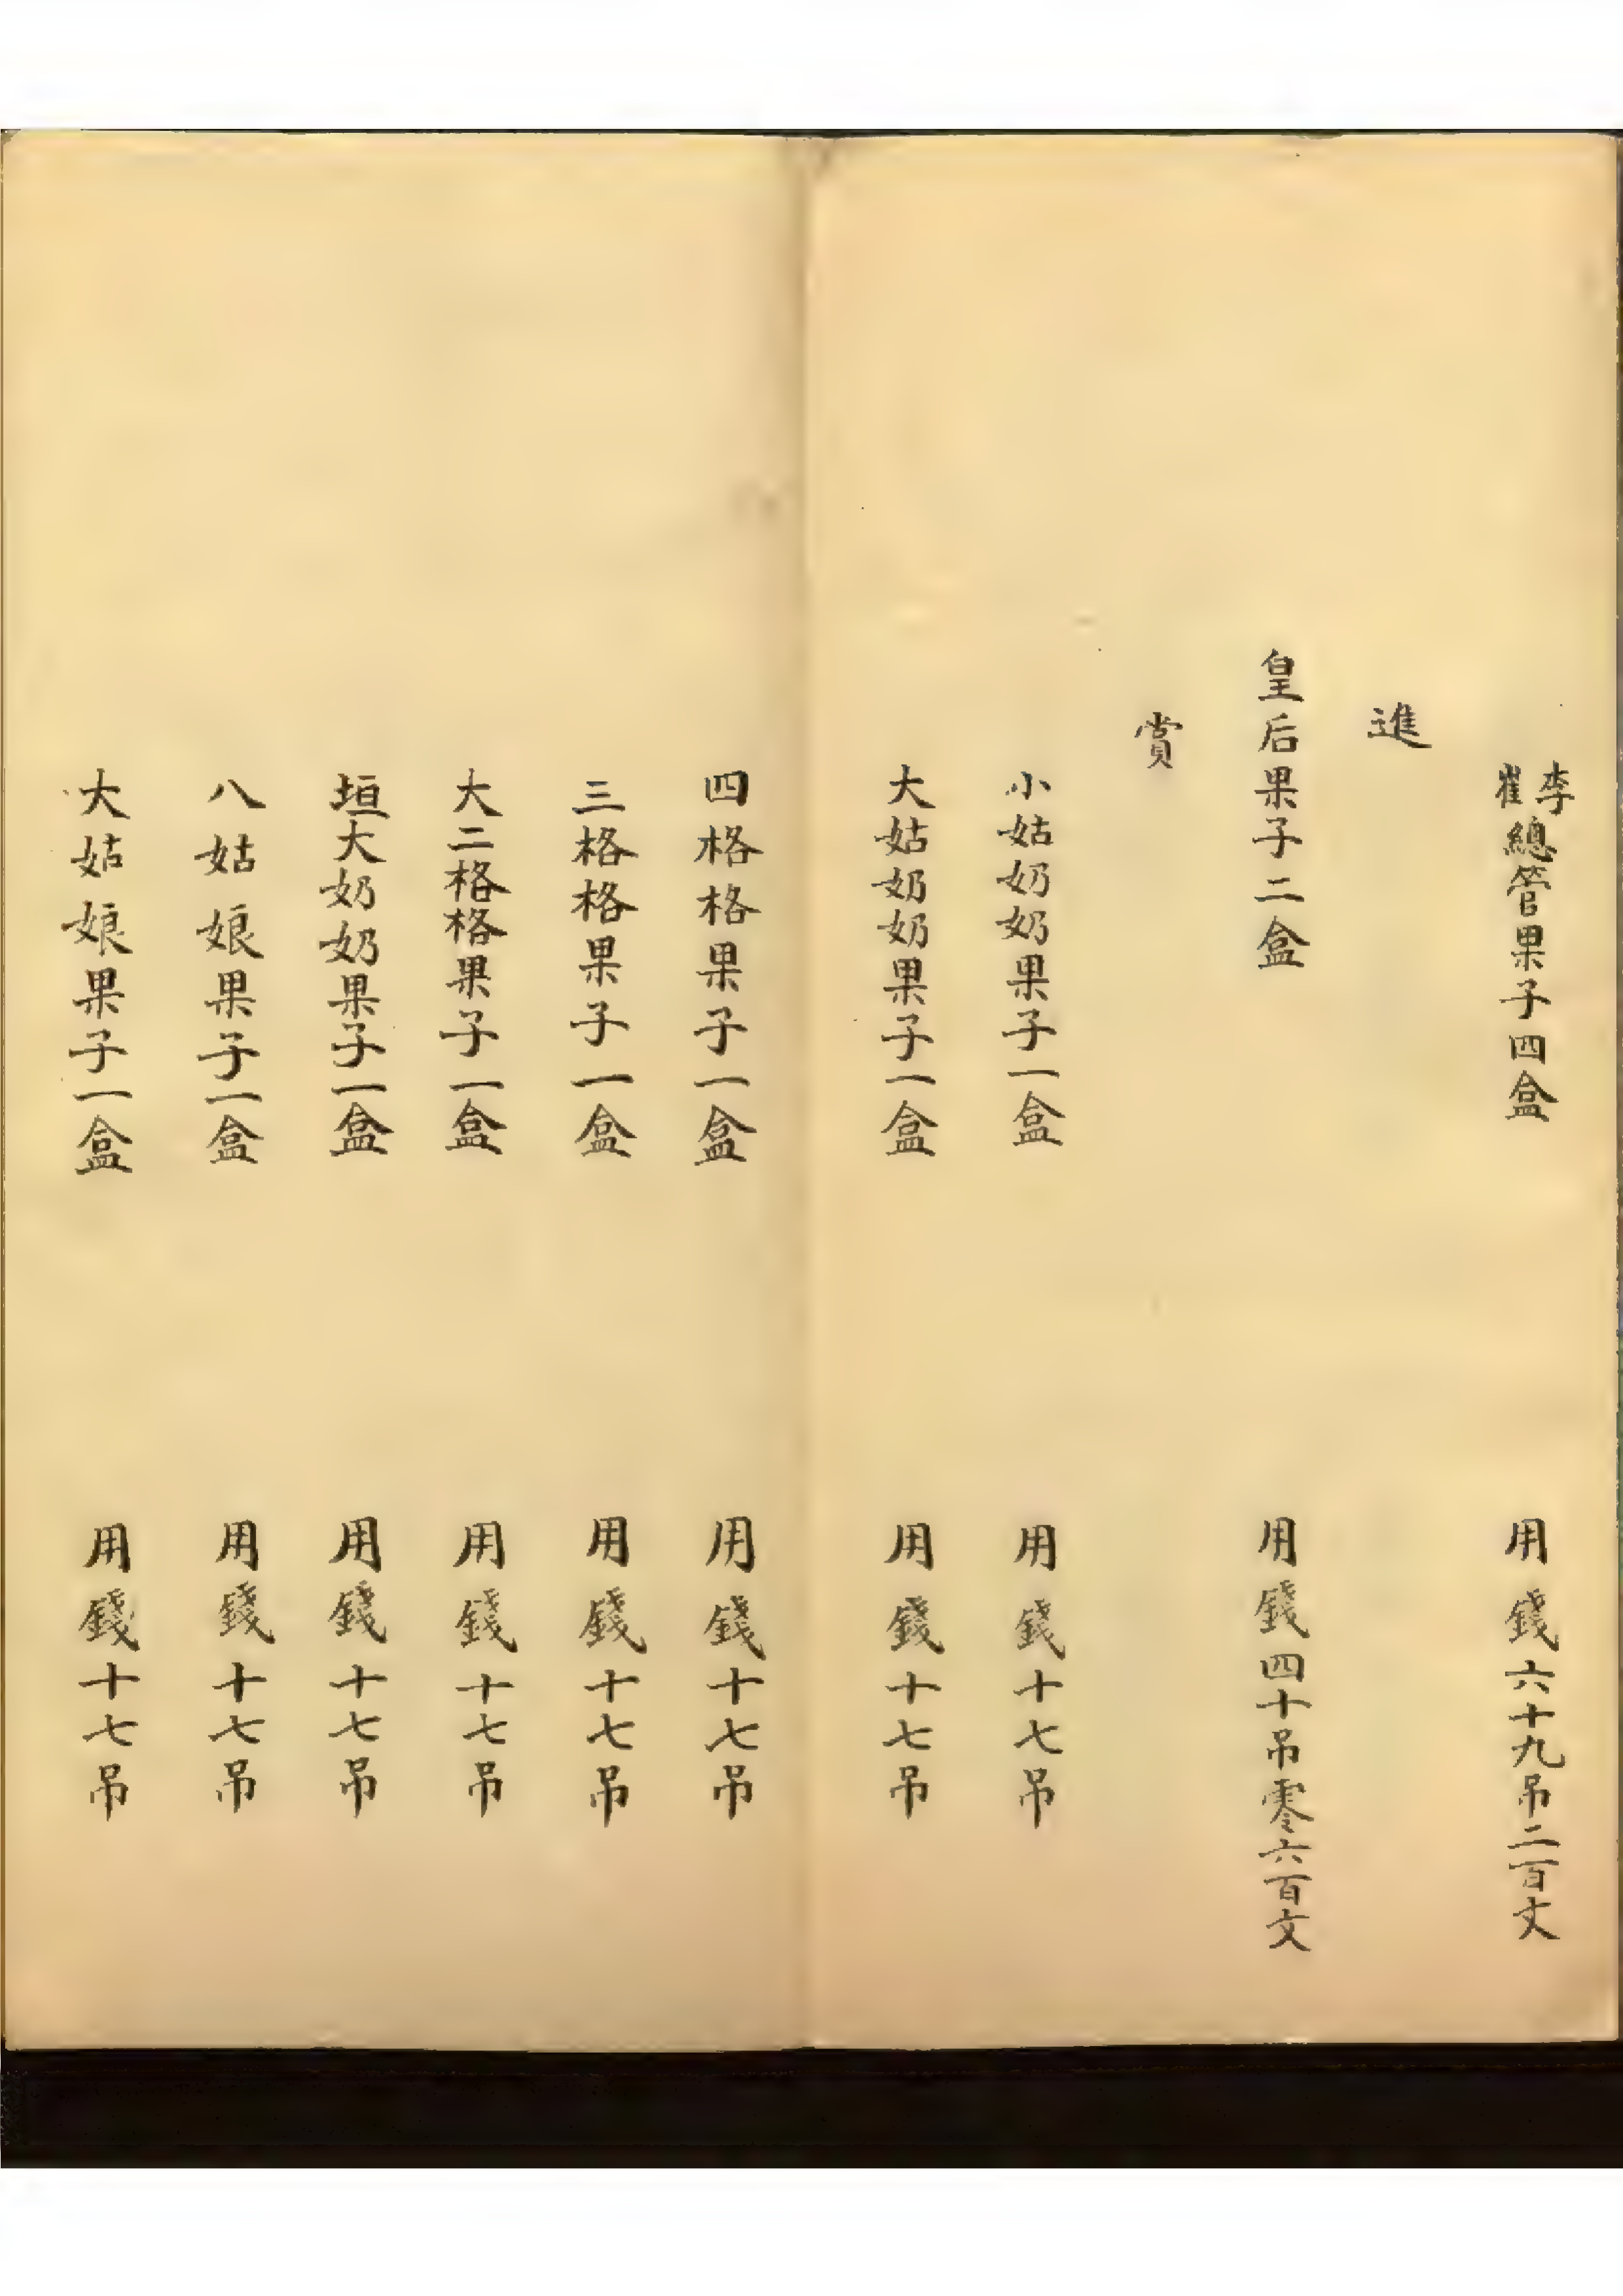 李崔總管果子四盒 用錢六十九吊二百文
進
皇后果子二盒 用錢四十吊零六百文
賞
小姑奶奶果子一盒 用錢十七吊
大姑奶奶果子一盒 用錢十七吊
四格格果子一盒 用錢十七吊
三格格果子一盒 用錢十七吊
大二格格果子一盒 用錢十七吊
垣大奶奶果子一盒 用錢十七吊
八姑娘果子一盒 用錢十七吊
大姑娘果子一盒 用錢十七吊